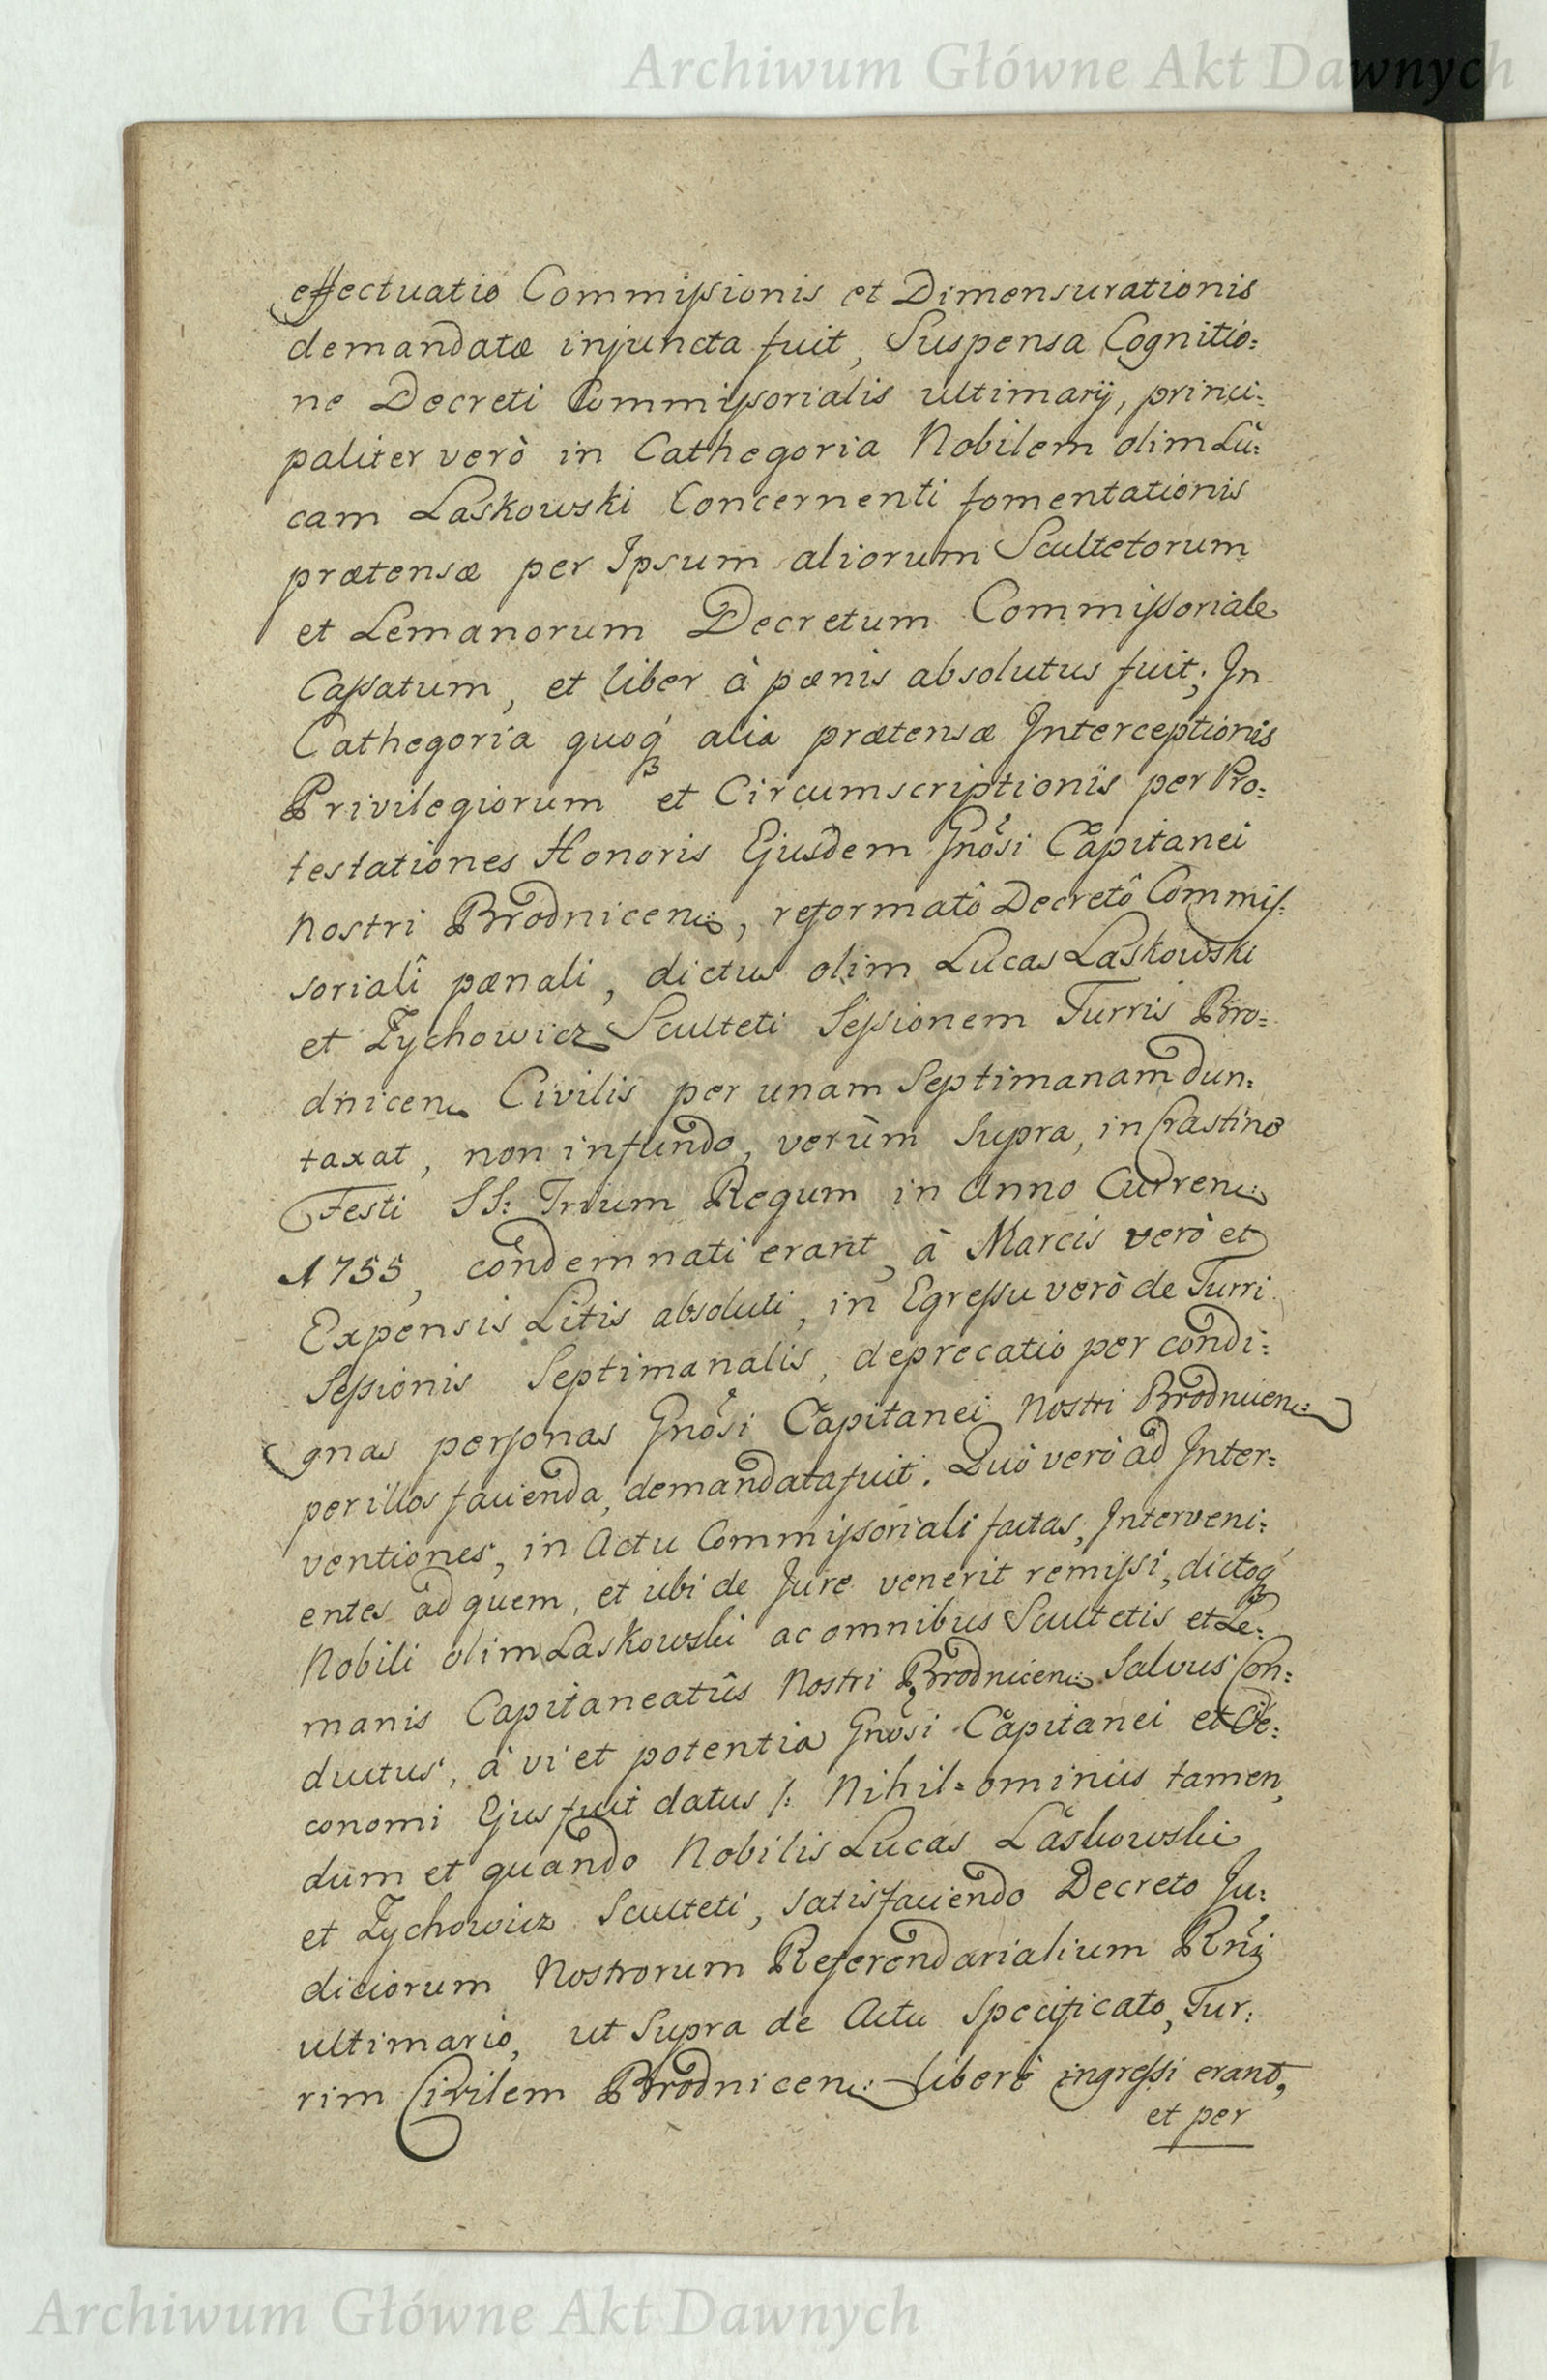 Archiwum Główne Akt Dawnych
effectuatio Commissionis et Dimensurationis
demandatæ injuncta fuit, Suspensa Cognitio=
ne Decreti Commissorialis ultimarij, princi=
paliter verò in Cathegoria Nobilem olim Lu=
cam Laskowski Concernenti fomentationis
prætensæ per Ipsum aliorum Scultetorum
et Lemanorum Decretum Commissoriale
Cassatum, et liber à pænis absolutus fuit; In
Cathegoria quoq́ʒ alia prætensæ Interceptionis
Privilegiorum et Circumscriptionis per Pro=
testationes Honoris Ejusdem Gnosi Capitanei
Nostri Brodnicen:, reformatô Decretô Commis=
sorialî pænali, dictus olim Lucas Laskowski
et Zychowicz Sculteti Sessionem Turris Bro=
dnicen: Civilis per unam Septimanam dun=
taxat, non in fundo, verùm Supra, in Crastino
Festi SS: Trium Regum in Anno Curren:
1755, condemnati erant, à Marcis verò et
Expensis Litis absoluti, in Egressu verò de Turri
Sessionis Septimanalis, deprecatio per condi=
gnas personas Gnosi Capitanei Nostri Brodnicen:
per illos facienda, demandata fuit. Quò verò ad Inter=
ventiones, in Actu Commissoriali factas, Interveni=
entes ad quem, et ubi de Jure venerit remissi, dictoq́ʒ
Nobili olim Laskowski ac omnibus Scultetis et Le=
manis Capitaneatûs Nostri Brodnicen: Salvus Con=
ductus, à vi et potentia Gnosi Capitanei et Oe=
conomi Ejus fuit datus /: Nihil=ominus tamen,
dum et quando Nobilis Lucas Laskowski
et Zychowicz Sculteti, satisfaciendo Decreto Ju=
diciorum Nostrorum Referendarialium Rnj
ultimario, ut Supra de Actu Specificato, Tur=
rim Civilem Brodnicen: liberè ingressi erant,
et per
Archiwum Główne Akt Dawnych